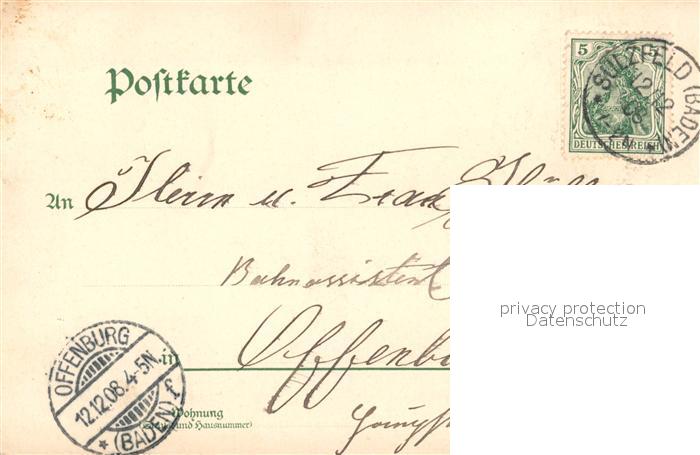 5 5
DEUTSCHES REICH
SULZFELD (BADEN)
12 12
Postkarte
An Herrn u. Frau
Bahnassistent
in Offenbu
Wohnung
(Straße und Hausnummer)
OFFENBURG
12.12.08.4-5N.
* (BADEN) f
privacy protection
Datenschutz